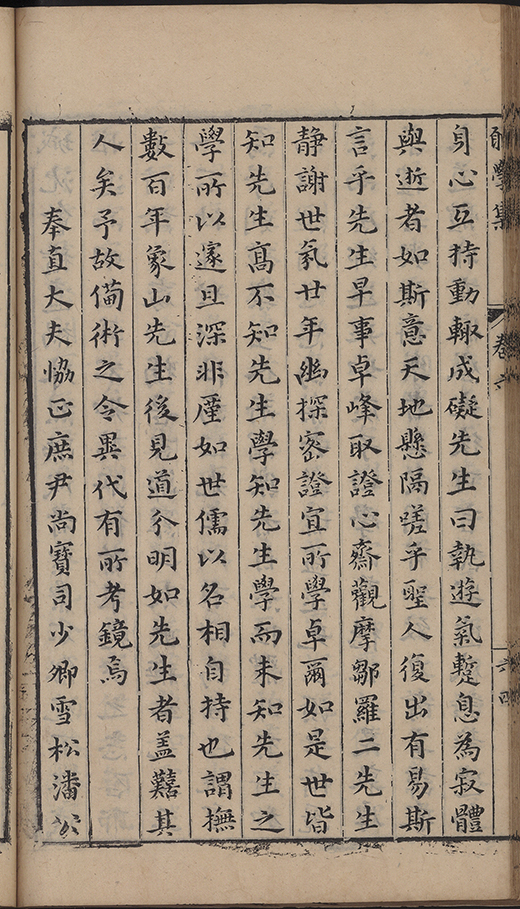 耐學集
卷六
六四
身心互持動輙成礙先生曰執遊氣蹔息為寂體
與逝者如斯意天地懸隔嗟乎聖人復出有易斯
言乎先生早事卓峰取證心齋觀摩鄒羅二先生
靜謝世氛廿年幽探密證宜所學卓爾如是世皆
知先生髙不知先生學知先生學而未知先生之
學所以邃且深非廑如世儒以名相自持也謂撫
數百年象山先生後見道分明如先生者盖囏其
人矣予故備術之令異代有所考鏡焉
奉直大夫恊正庶尹尚寶司少卿雪松潘公